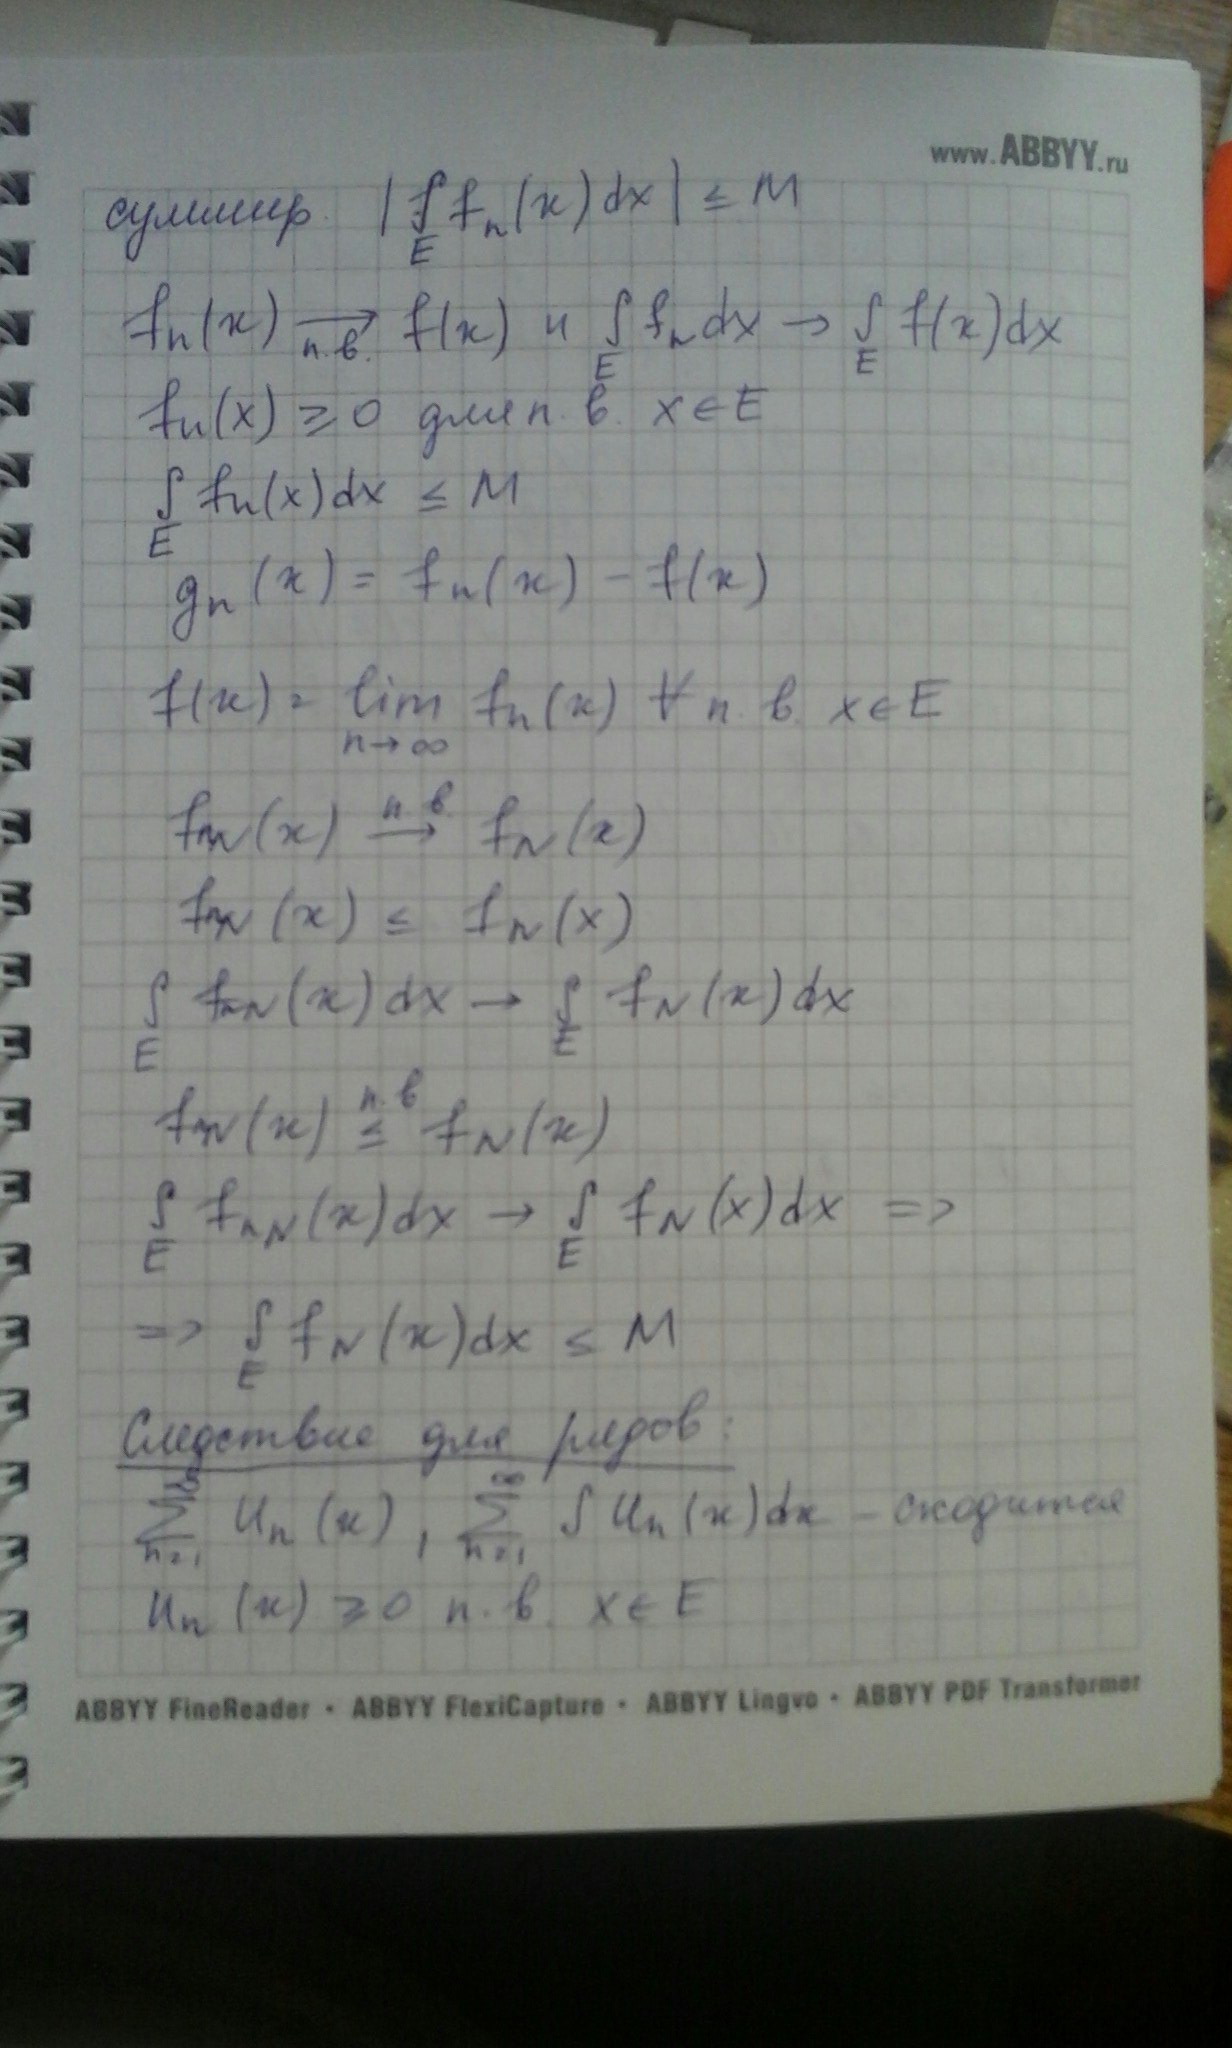 www.ABBYY.ru
суммир. |∫_E fₙ(x)dx| ≤ M
fₙ(x) →_{п.в.} f(x) и ∫_E fₙdx → ∫_E f(x)dx
fₙ(x) ≥ 0 для п.в. x∈E
∫_E fₙ(x)dx ≤ M
gₙ(x) = fₙ(x) − f(x)
f(x) = lim_{n→∞} fₙ(x) ∀ п.в. x∈E
f_{nN}(x) →^{п.в.} f_N(x)
f_{nN}(x) ≤ f_N(x)
∫_E f_{nN}(x)dx → ∫_E f_N(x)dx
f_{nN}(x) ≤^{п.в} f_N(x)
∫_E f_{nN}(x)dx → ∫_E f_N(x)dx =>
=> ∫_E f_N(x)dx ≤ M
Следствие для рядов:
∑_{n=1}^∞ uₙ(x), ∑_{n=1}^∞ ∫uₙ(x)dx – сходится
uₙ(x) ≥ 0 п.в. x∈E
ABBYY FineReader • ABBYY FlexiCapture • ABBYY Lingvo • ABBYY PDF Transformer